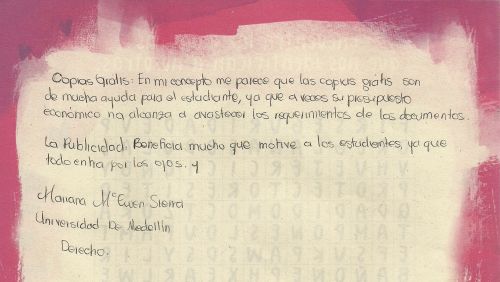 Copias Gratis: En mi concepto me parece que las copias gratis son
de mucha ayuda para el estudiante, ya que a veces su presupuesto
económico no alcanza a avastecer los requerimientos de los documentos.
La Publicidad: Beneficia mucho que motive a los estudiantes, ya que
todo enha por los ojos. y
Mariana McEwen Sierra
Universidad De Medellín
Derecho.